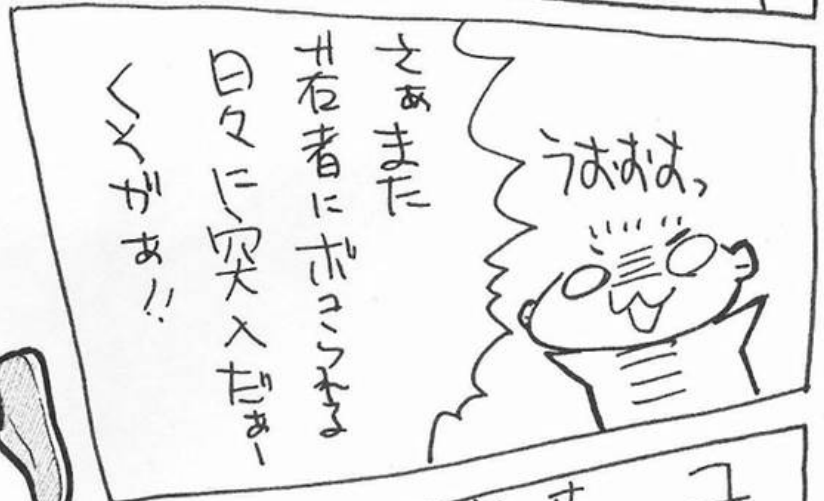 うおおおっ
さぁまた
若者にボコられる
日々に突入だぁー
くそがぁ!!